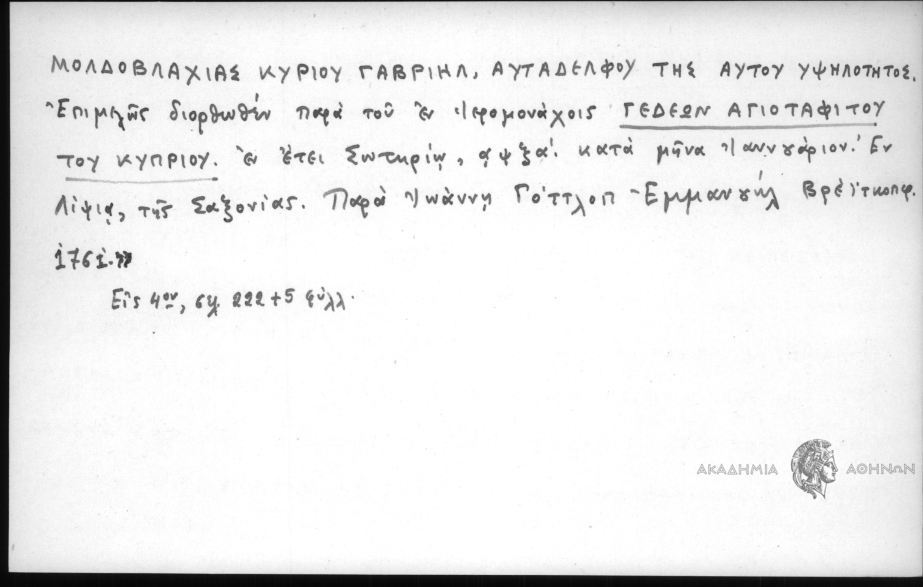 ΜΟΛΔΟΒΛΑΧΙΑΣ ΚΥΡΙΟΥ ΓΑΒΡΙΗΛ, ΑΥΤΑΔΕΛΦΟΥ ΤΗΣ ΑΥΤΟΥ ΥΨΗΛΟΤΗΤΟΣ.
Ἐπιμελῶς διορθωθέν παρά τοῦ ἐν Ἱερομονάχοις ΓΕΔΕΩΝ ΑΓΙΟΤΑΦΙΤΟΥ
ΤΟΥ ΚΥΠΡΙΟΥ. ἐν ἔτει Σωτηρίῳ, αψξα΄. κατά μῆνα Ἰαννουάριον. Ἐν
Λίψιᾳ, τῆς Σαξονίας. Παρά Ἰωάννῃ Γόττλοπ Ἐμμανουήλ Βρέϊτκοπφ.
1761.»
Εἰς 4ον, σχ. 222 + 5 φύλλ.
ΑΚΑΔΗΜΙΑ ΑΘΗΝΩΝ